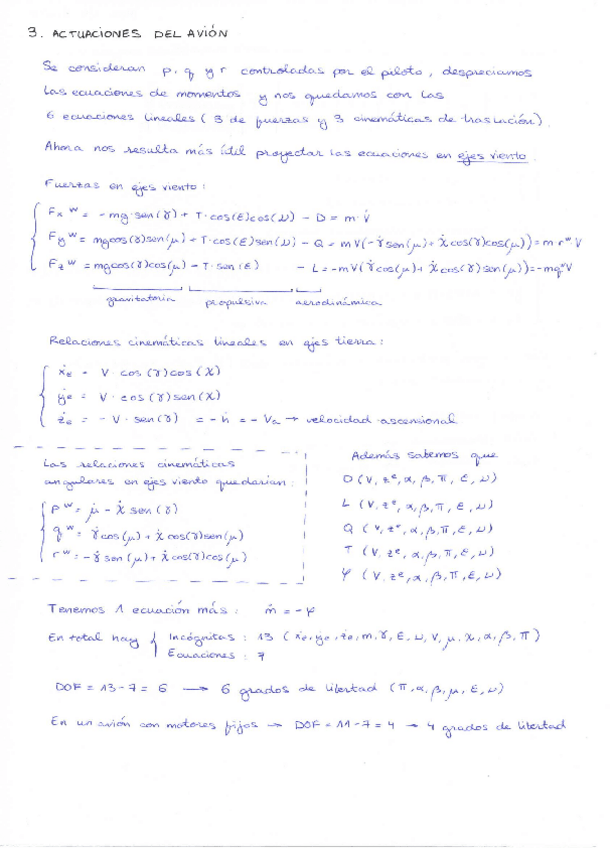 3. ACTUACIONES DEL AVIÓN
Se consideran p, q y r controladas por el piloto, despreciamos
las ecuaciones de momentos y nos quedamos con las
6 ecuaciones lineales (3 de fuerzas y 3 cinemáticas de traslación).
Ahora nos resulta más útil proyectar las ecuaciones en ejes viento.
Fuerzas en ejes viento:
Fx^w = - mg·sen(γ) + T·cos(ε)cos(ν) - D = m·V̇
Fy^w = mgcos(γ)sen(μ) + T·cos(ε)sen(ν) - Q = mV(-γ̇sen(μ) + χ̇cos(γ)cos(μ)) = m r^w V
Fz^w = mgcos(γ)cos(μ) - T·sen(ε) - L = -mV(γ̇cos(μ) + χ̇cos(γ)sen(μ)) = -mq^wV
gravitatoria propulsiva aerodinámica
Relaciones cinemáticas lineales en ejes tierra:
ẋe = V·cos(γ)cos(χ)
ẏe = V·cos(γ)sen(χ)
że = - V·sen(γ) = -ḣ = - Va → velocidad ascensional
Las relaciones cinemáticas
angulares en ejes viento quedarían:
p^w = μ̇ - χ̇ sen(γ)
q^w = γ̇cos(μ) + χ̇cos(γ)sen(μ)
r^w = -γ̇sen(μ) + χ̇cos(γ)cos(μ)
Además sabemos que
D (V, ze, α, β, π, ε, ν)
L (V, ze, α, β, π, ε, ν)
Q (V, ze, α, β, π, ε, ν)
T (V, ze, α, β, π, ε, ν)
φ (V, ze, α, β, π, ε, ν)
Tenemos 1 ecuación más: ṁ = -φ
En total hay { Incógnitas: 13 (xe, ye, ze, m, γ, ε, ν, V, μ, χ, α, β, π)
Ecuaciones: 7
DOF = 13-7 = 6 → 6 grados de libertad (π, α, β, μ, ε, ν)
En un avión con motores fijos → DOF = 11-7 = 4 → 4 grados de libertad